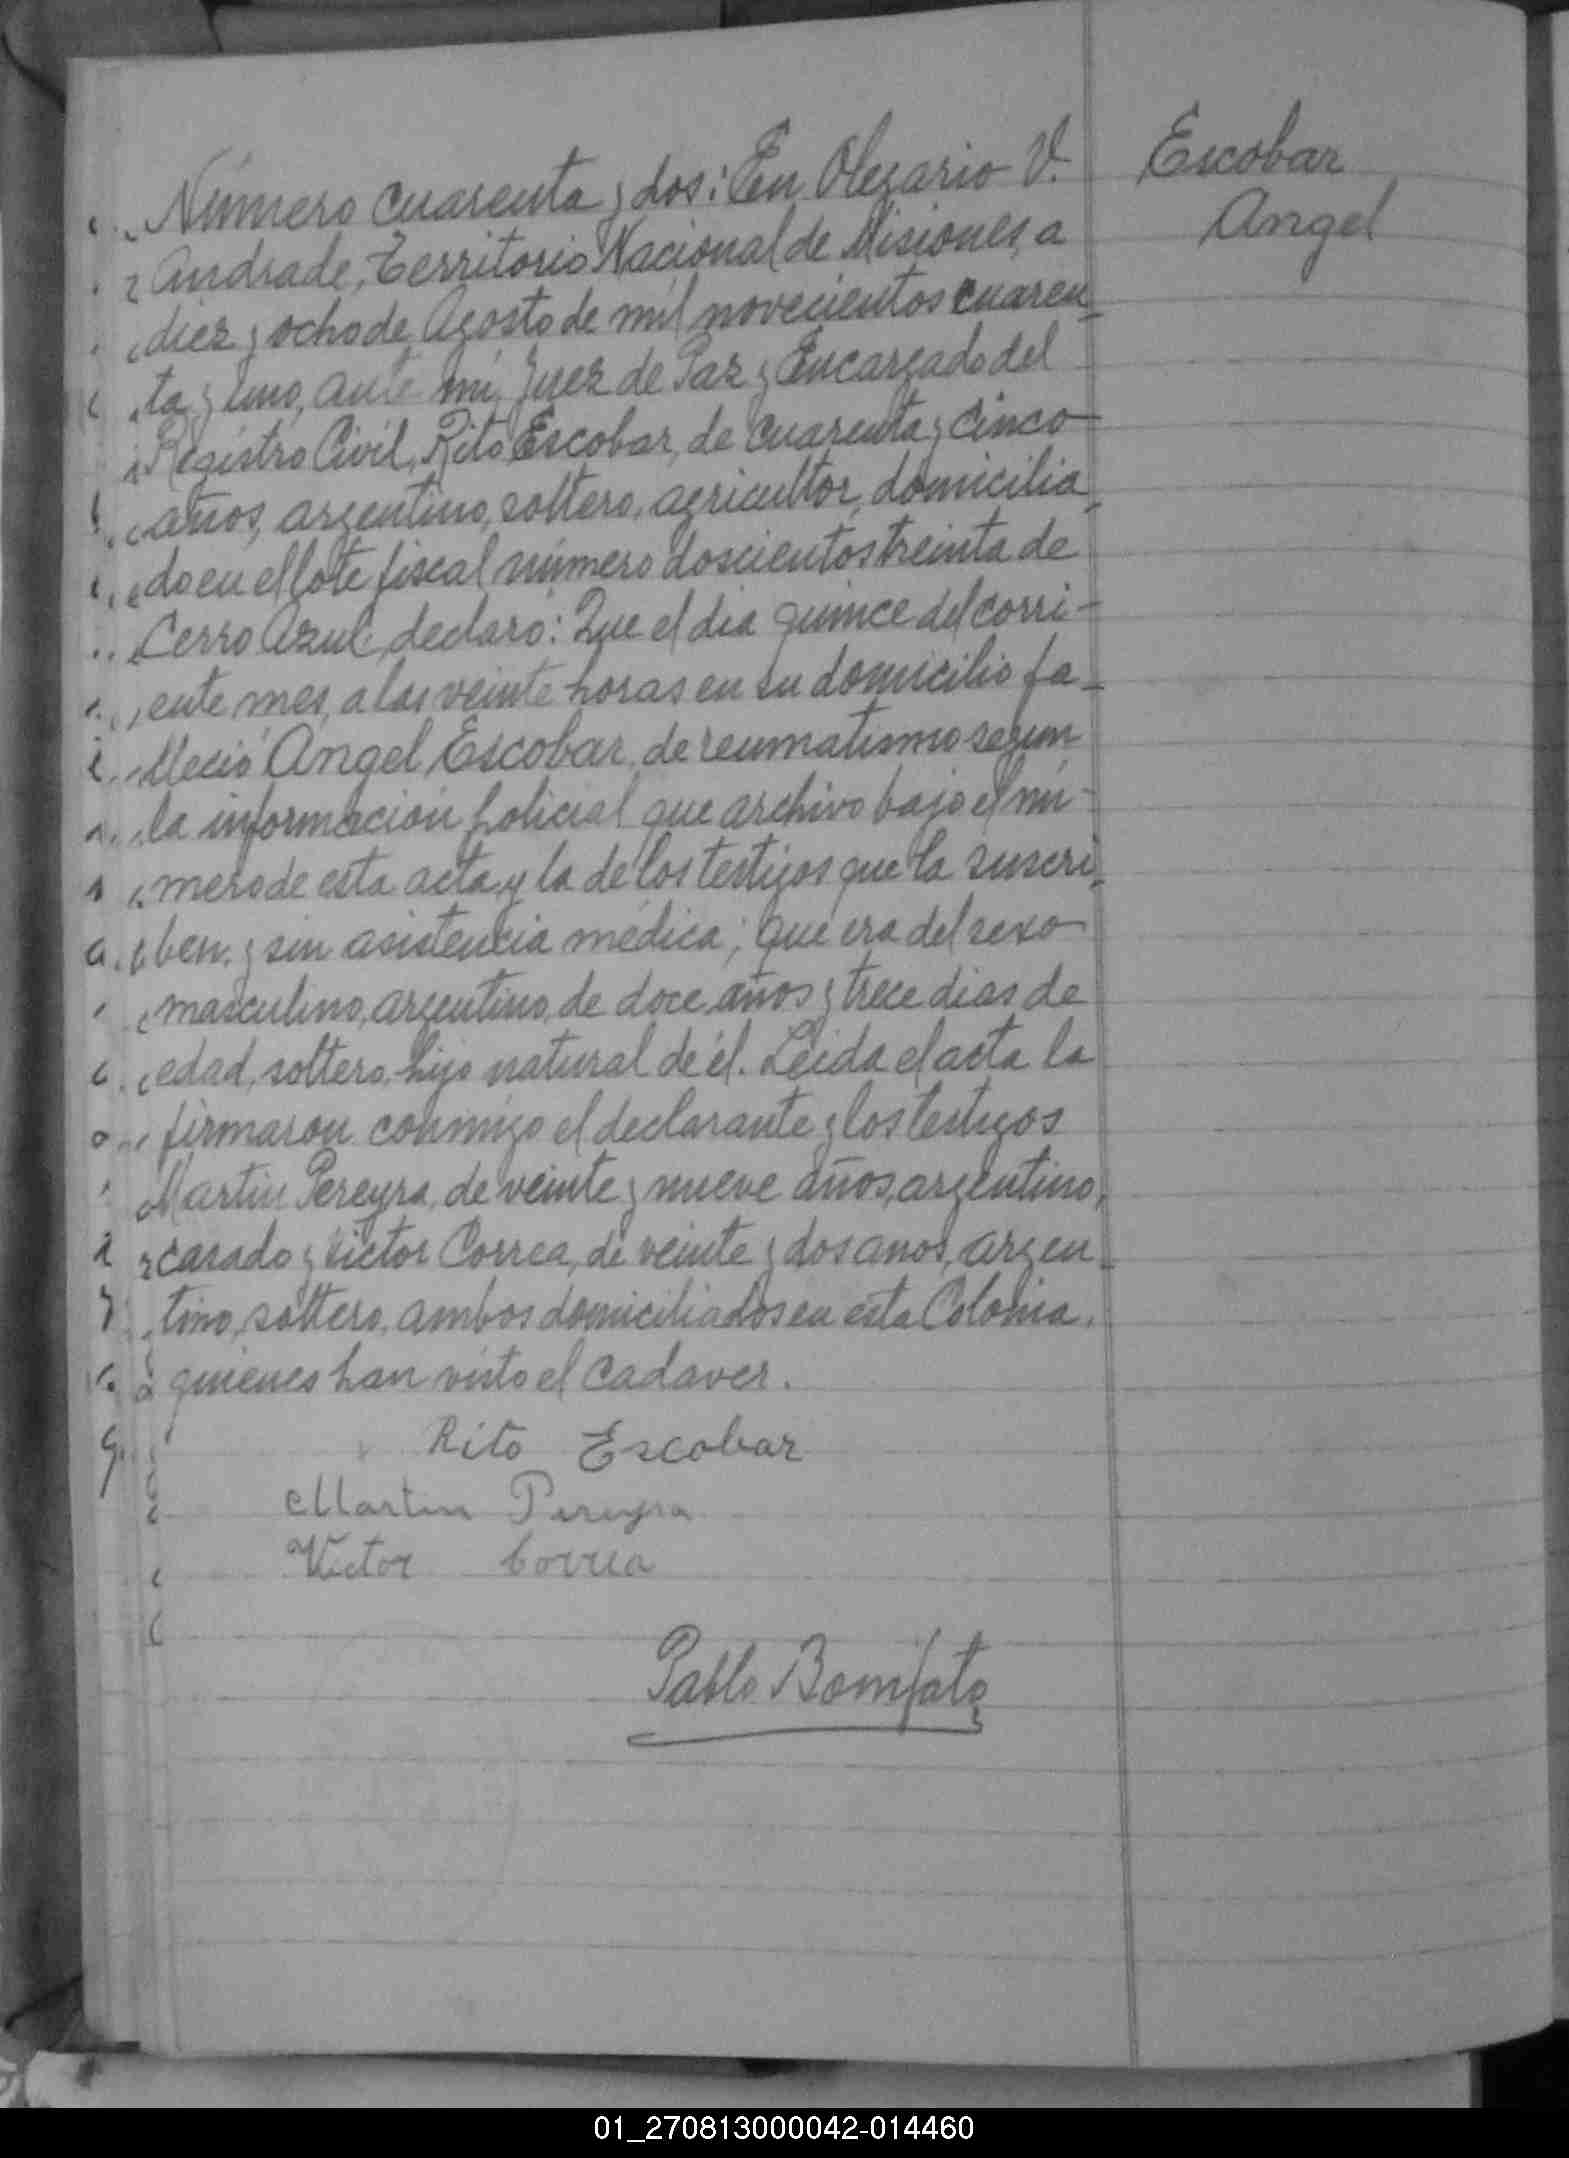 Escobar
Angel
Número cuarenta y dos: En Olegario V.
Andrade, Territorio Nacional de Misiones, a
diez y ocho de Agosto de mil novecientos cuaren-
ta y uno, ante mí, Juez de Paz y Encargado del
Registro Civil, Rito Escobar, de cuarenta y cinco
años, argentino, soltero, agricultor, domicilia-
do en el lote fiscal número doscientos treinta de
Cerro Azul, declaró: Que el día quince del corri-
ente mes, a las veinte horas en su domicilio fa-
lleció Angel Escobar, de reumatismo segun
la información policial que archivo bajo el nú-
mero de esta acta y la de los testigos que la suscri-
ben y sin asistencia médica; que era del sexo
masculino, argentino, de doce años y trece dias de
edad, soltero, hijo natural de él. Leida el acta la
firmaron conmigo el declarante y los testigos
Martin Pereyra, de veinte y nueve años, argentino,
casado y Victor Correa, de veinte y dos anos, argen-
tino, soltero, ambos domiciliados en esta Colonia,
quienes han visto el cadaver.
Rito Escobar
Martin Pereyra
Victor Correa
Pablo Bonifato
01_270813000042-014460